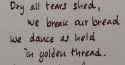 Dry all tears shed,
we break our bread
we dance as held
in golden thread.